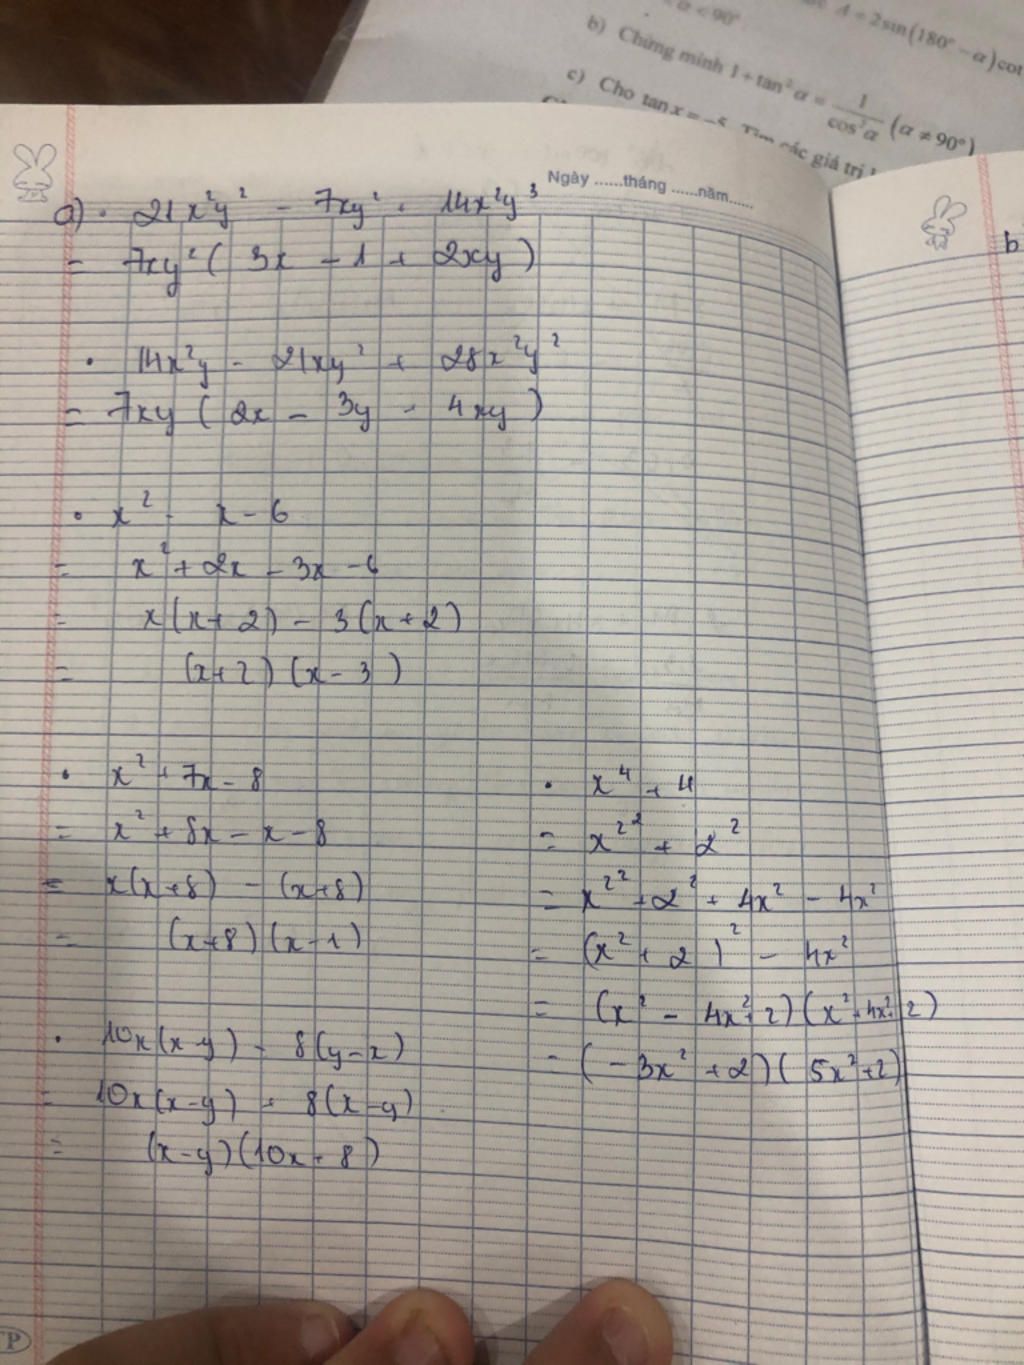 α < 90°
A = 2sin(180° − α)cot
b) Chứng minh 1 + tan²α = 1/cos²α (α ≠ 90°)
c) Cho tan x = −5. Tìm các giá trị
Ngày ......tháng ......năm......
a) • 21x²y² − 7xy² + 14x²y³
= 7xy² ( 3x − 1 + 2xy )
• 14x²y − 21xy² + 28x²y²
= 7xy ( 2x − 3y + 4xy )
• x² − x − 6
= x² + 2x − 3x − 6
= x(x + 2) − 3(x + 2)
= (x + 2) (x − 3)
• x² + 7x − 8
= x² + 8x − x − 8
= x(x + 8) − (x + 8)
= (x + 8) (x − 1)
• 10x(x − y) − 8(y − x)
= 10x(x − y) + 8(x − y)
= (x − y)(10x + 8)
• x⁴ + 4
= x²² + 2²
= x²² + 2² + 4x² − 4x²
= (x² + 2)² − 4x²
= (x² − 4x² + 2) (x² + 4x² + 2)
= (−3x² + 2) (5x² + 2)
b